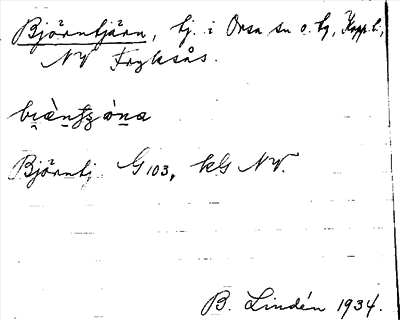 Björntjärn, tj. i Orsa sn o. tg, Kopp. l.,
NV Fryksås.
Björntj G103, kG NV.
B. Lindén 1934.